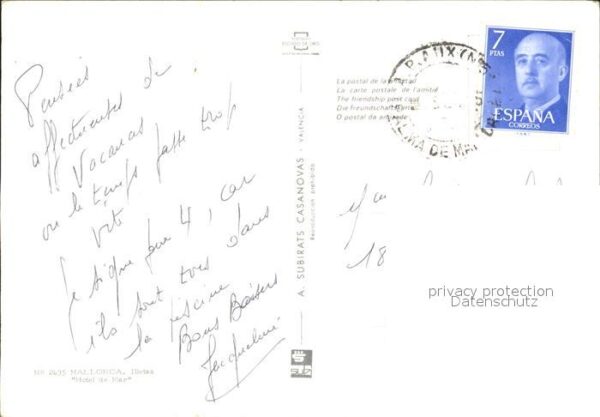 Pensées
affectueuses de
Vacances
ou le temps passe trop
vite
Je signe pour 4, car
ils sont tous dans
la piscine
Bons Baisers
Jacqueline
NR 2495 MALLORCA, Illetas
"Hotel de Mar"
A. SUBIRATS CASANOVAS - VALENCIA
Reproduccion prohibida
La postal de la amistad
La carte postale de l'amitié
The friendship post card
Die freundschaftskarte
O postal da amizade
PALMA DE MALLORCA
7
PTAS
ESPAÑA
CORREOS
18
privacy protection
Datenschutz